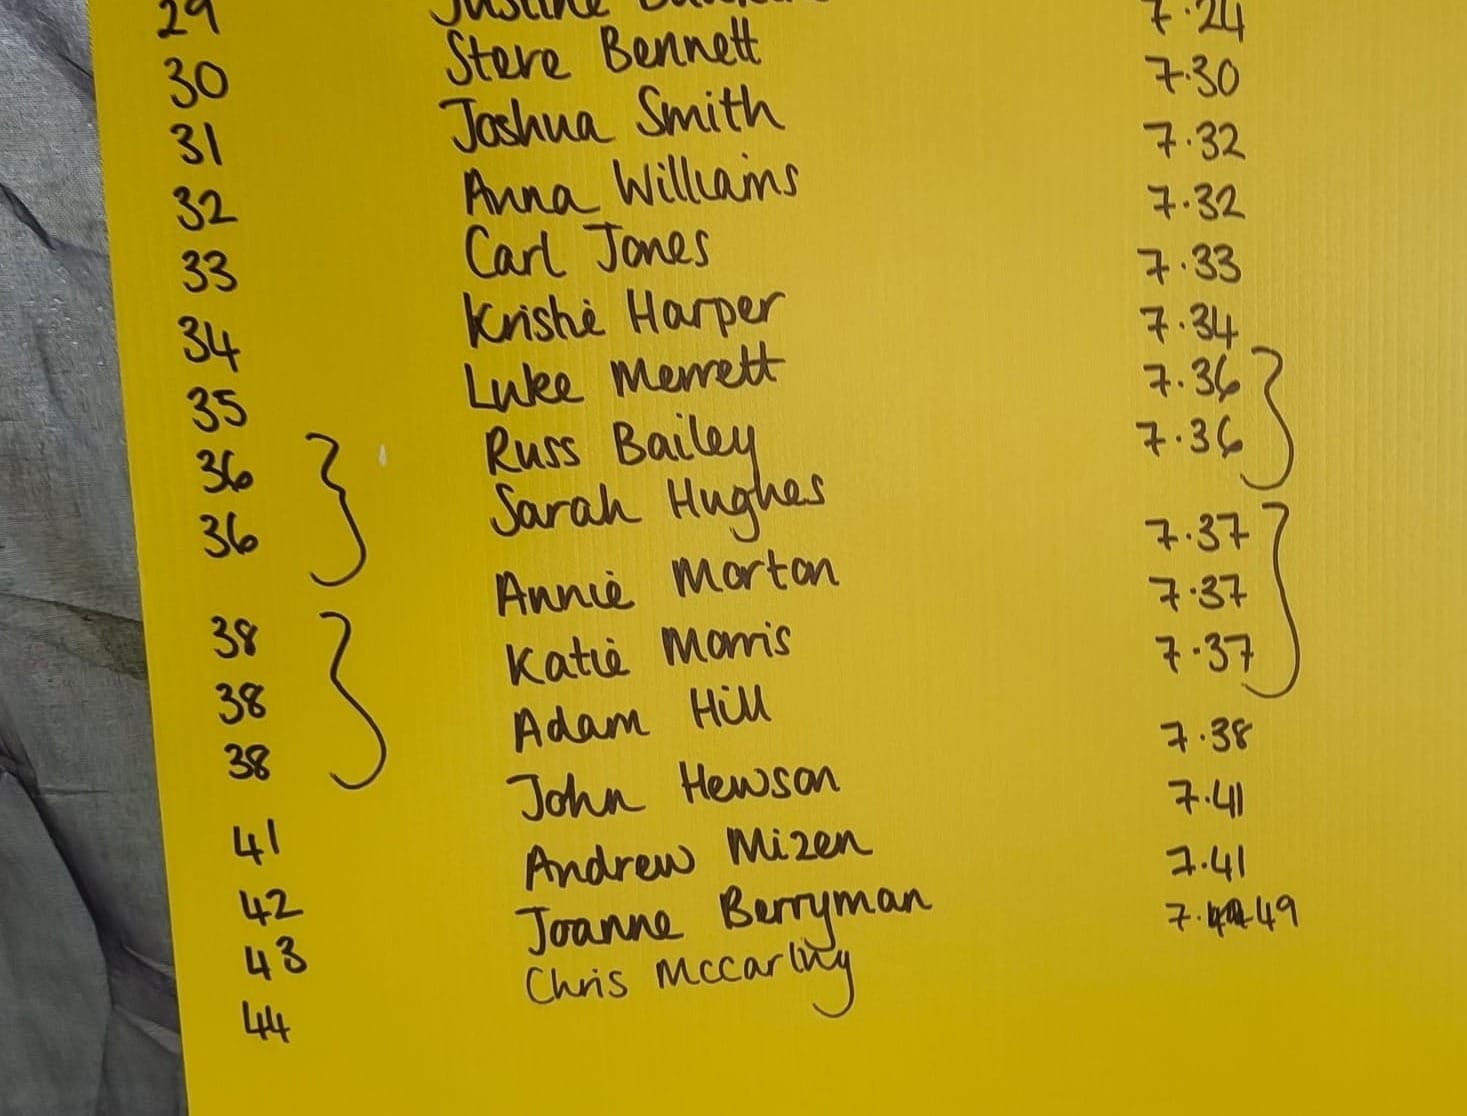 29 Justine 7.24
30 Steve Bennett 7.30
31 Joshua Smith 7.32
32 Anna Williams 7.32
33 Carl Jones 7.33
34 Kristie Harper 7.34
35 Luke Merrett 7.36
36 Russ Bailey 7.36
36 Sarah Hughes 7.37
38 Annie Morton 7.37
38 Katie Morris 7.37
38 Adam Hill 7.38
41 John Hewson 7.41
42 Andrew Mizen 7.41
43 Joanne Berryman 7.49
44 Chris McCarthy